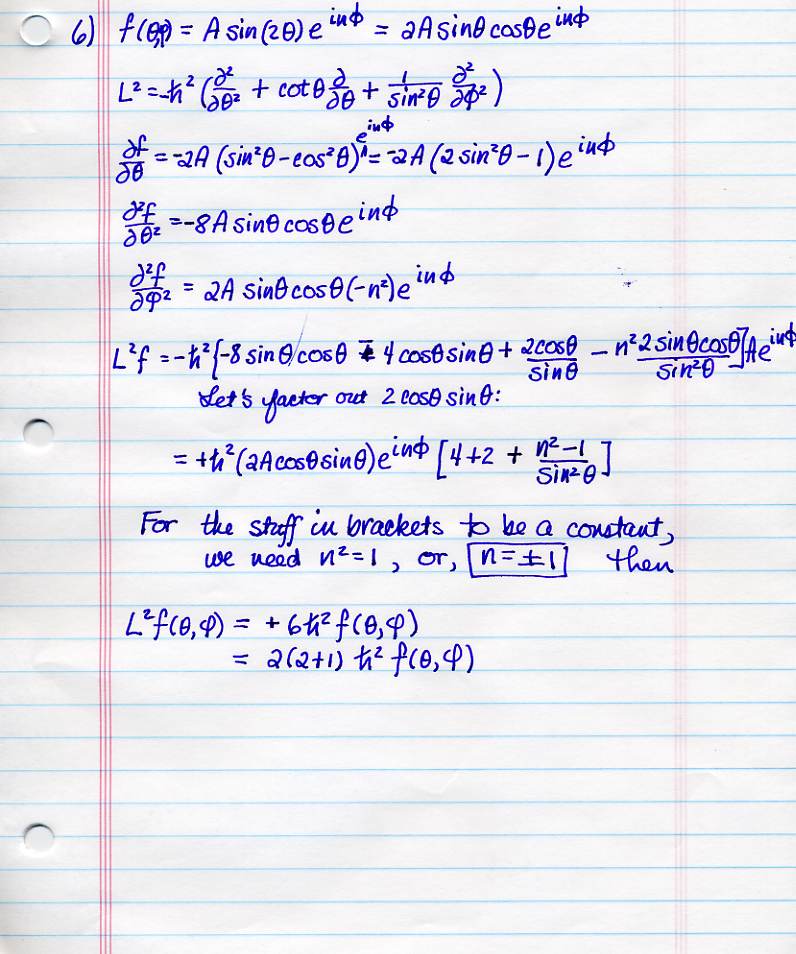 6) f(θ,φ) = A sin(2θ) e^{inφ} = 2A sinθ cosθ e^{inφ}
L² = -ħ² (∂²/∂θ² + cotθ ∂/∂θ + 1/sin²θ ∂²/∂φ²)
∂f/∂θ = -2A (sin²θ - cos²θ) e^{inφ} = -2A (2 sin²θ - 1) e^{inφ}
∂²f/∂θ² = -8A sinθ cosθ e^{inφ}
∂²f/∂φ² = 2A sinθ cosθ (-n²) e^{inφ}
L²f = -ħ² [-8 sinθ cosθ - 4 cosθ sinθ + 2cosθ/sinθ - n² 2 sinθ cosθ/sin²θ] A e^{inφ}
Let's factor out 2 cosθ sinθ:
= +ħ² (2A cosθ sinθ) e^{inφ} [4+2 + n²-1/sin²θ]
For the stuff in brackets to be a constant,
we need n² = 1, or, n = ±1 then
L²f(θ,φ) = + 6ħ² f(θ,φ)
= 2(2+1) ħ² f(θ,φ)